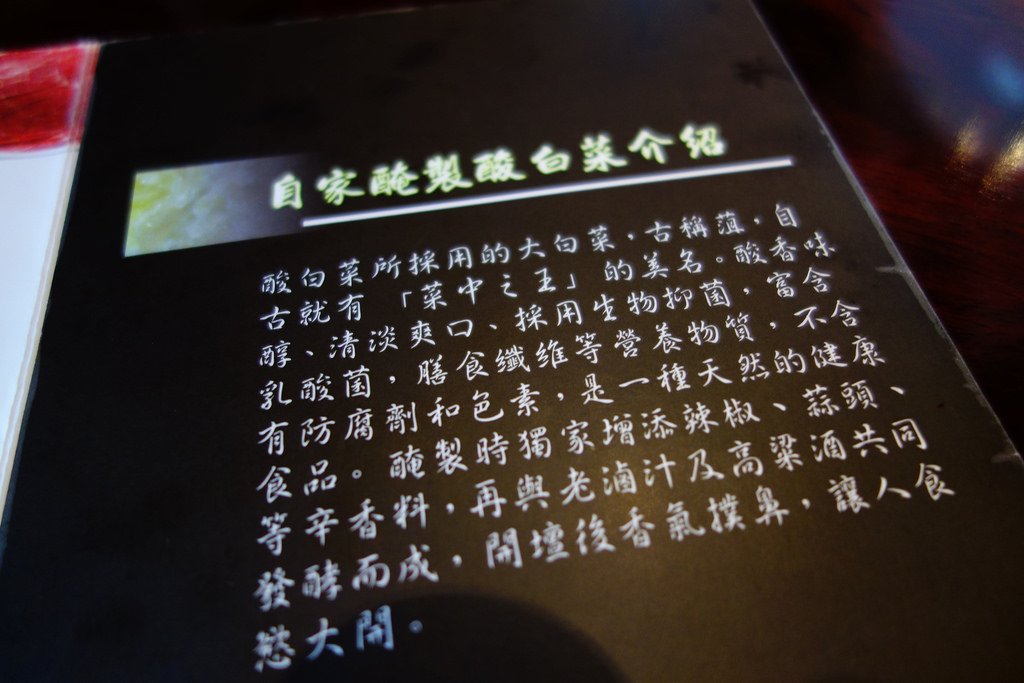 自家醃製酸白菜介紹
酸白菜所採用的大白菜，古稱菹，自
古就有「菜中之王」的美名。酸香味
醇、清淡爽口、採用生物抑菌，富含
乳酸菌，膳食纖維等營養物質，不含
有防腐劑和色素，是一種天然的健康
食品。醃製時獨家增添辣椒、蒜頭、
等辛香料，再與老滷汁及高粱酒共同
發酵而成，開壇後香氣撲鼻，讓人食
慾大開。